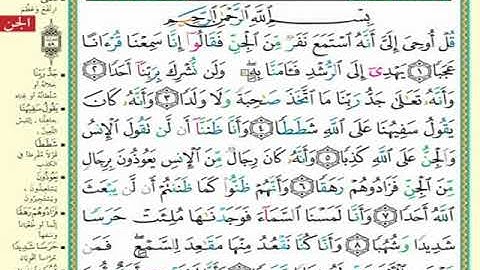 الجن
بِسْمِ اللَّهِ الرَّحْمَٰنِ الرَّحِيمِ
قُلْ أُوحِيَ إِلَيَّ أَنَّهُ اسْتَمَعَ نَفَرٌ مِّنَ الْجِنِّ فَقَالُوٓا۟ إِنَّا سَمِعْنَا قُرْءَانًا
عَجَبًا ۝١ يَهْدِىٓ إِلَى الرُّشْدِ فَـَٔامَنَّا بِهِۦ ۖ وَلَن نُّشْرِكَ بِرَبِّنَآ أَحَدًا ۝٢
وَأَنَّهُۥ تَعَٰلَىٰ جَدُّ رَبِّنَا مَا اتَّخَذَ صَٰحِبَةً وَلَا وَلَدًا ۝٣ وَأَنَّهُۥ كَانَ
يَقُولُ سَفِيهُنَا عَلَى اللَّهِ شَطَطًا ۝٤ وَأَنَّا ظَنَنَّآ أَن لَّن تَقُولَ الْإِنسُ
وَالْجِنُّ عَلَى اللَّهِ كَذِبًا ۝٥ وَأَنَّهُۥ كَانَ رِجَالٌ مِّنَ الْإِنسِ يَعُوذُونَ بِرِجَالٍ
مِّنَ الْجِنِّ فَزَادُوهُمْ رَهَقًا ۝٦ وَأَنَّهُمْ ظَنُّوا۟ كَمَا ظَنَنتُمْ أَن لَّن يَبْعَثَ
اللَّهُ أَحَدًا ۝٧ وَأَنَّا لَمَسْنَا السَّمَآءَ فَوَجَدْنَٰهَا مُلِئَتْ حَرَسًا
شَدِيدًا وَشُهُبًا ۝٨ وَأَنَّا كُنَّا نَقْعُدُ مِنْهَا مَقَٰعِدَ لِلسَّمْعِ ۖ فَمَن
جَدُّ رَبِّنَا
يَقُولُ سَفِيهُنَا
شَطَطًا
يَعُوذُونَ
فَزَادُوهُمْ رَهَقًا
حَرَسًا شَدِيدًا